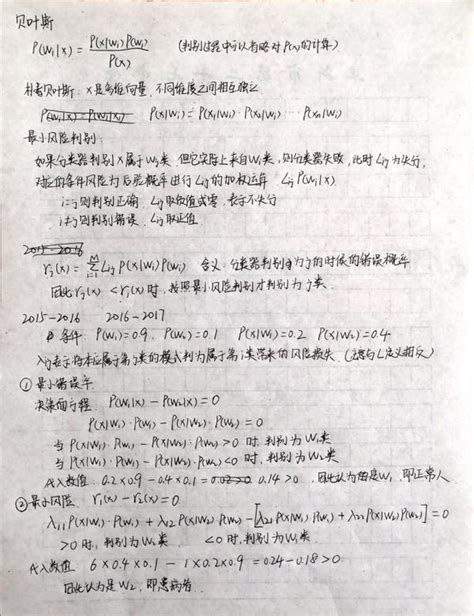 贝叶斯
P(wi|x) = P(x|wi)P(wi) / P(x) (判别过程中可以省略对P(x)的计算)
朴素贝叶斯: x是多维向量, 不同维度之间相互独立
P(wi|x) = P(wi|xi) P(x|wi) = P(x1|wi)·P(x2|wi) ··· P(xn|wi)
最小风险判别:
如果分类器判别x属于wj类, 但它实际上来自wi类, 则分类器失败, 此时Lij为失分,
对应的条件风险为后验概率进行Lij的加权运算. Lij P(wi|x)
i=j 则判别正确, Lij取负值或零, 表示不失分
i≠j 则判别错误, Lij取正值
2015-2016
rj(x) = M∑i=1 Lij P(x|wi)P(wi) 含义: 分类器判别为j的时候的错误概率
因此 rj(x) < ri(x) 时, 按照最小风险判别才判别为j类.
2015-2016 2016-2017
条件: P(w1)=0.9, P(w2)=0.1 P(x|w1)=0.2 P(x|w2)=0.4
λij表示将本应属于第j类的模式判为属于第i类带来的风险损失. (注意与L定义相反)
① 最小错误率
决策面方程 P(w1|x) - P(w2|x) = 0
P(x|w1)·P(w1) - P(x|w2)·P(w2) = 0
当 P(x|w1)·P(w1) - P(x|w2)·P(w2) > 0 时, 判别为W1类
当 P(x|w1)·P(w1) - P(x|w2)·P(w2) < 0 时, 判别为W2类
代入数值: 0.2×0.9 - 0.4×0.1 = 0.14 > 0 因此认为是W1, 即正常人
② 最小风险 r1(x) - r2(x) = 0
λ11 P(x|w1)·P(w1) + λ12 P(x|w2)·P(w2) - [λ21 P(x|w1)P(w1) + λ22 P(x|w2)P(w2)] = 0
>0 时, 判别为W2类 <0 时, 判别为W1类
代入数值 6×0.4×0.1 - 1×0.2×0.9 = 0.24 - 0.18 > 0
因此认为是W2, 即患病者.